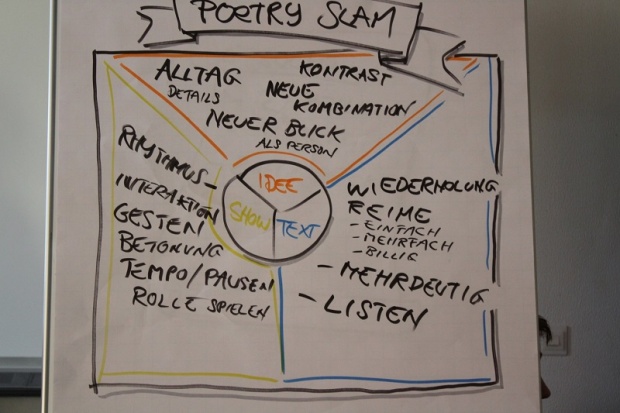 POETRY SLAM
ALLTAG
DETAILS
KONTRAST
NEUE
KOMBINATION
NEUER BLICK
ALS PERSON
IDEE
SHOW
TEXT
RHYTHMUS-
INTERAKTION
GESTEN
BETONUNG
TEMPO/PAUSEN
ROLLE SPIELEN
WIEDERHOLUNG
REIME
- EINFACH
- MEHRFACH
- BILLIG
- MEHRDEUTIG
- LISTEN